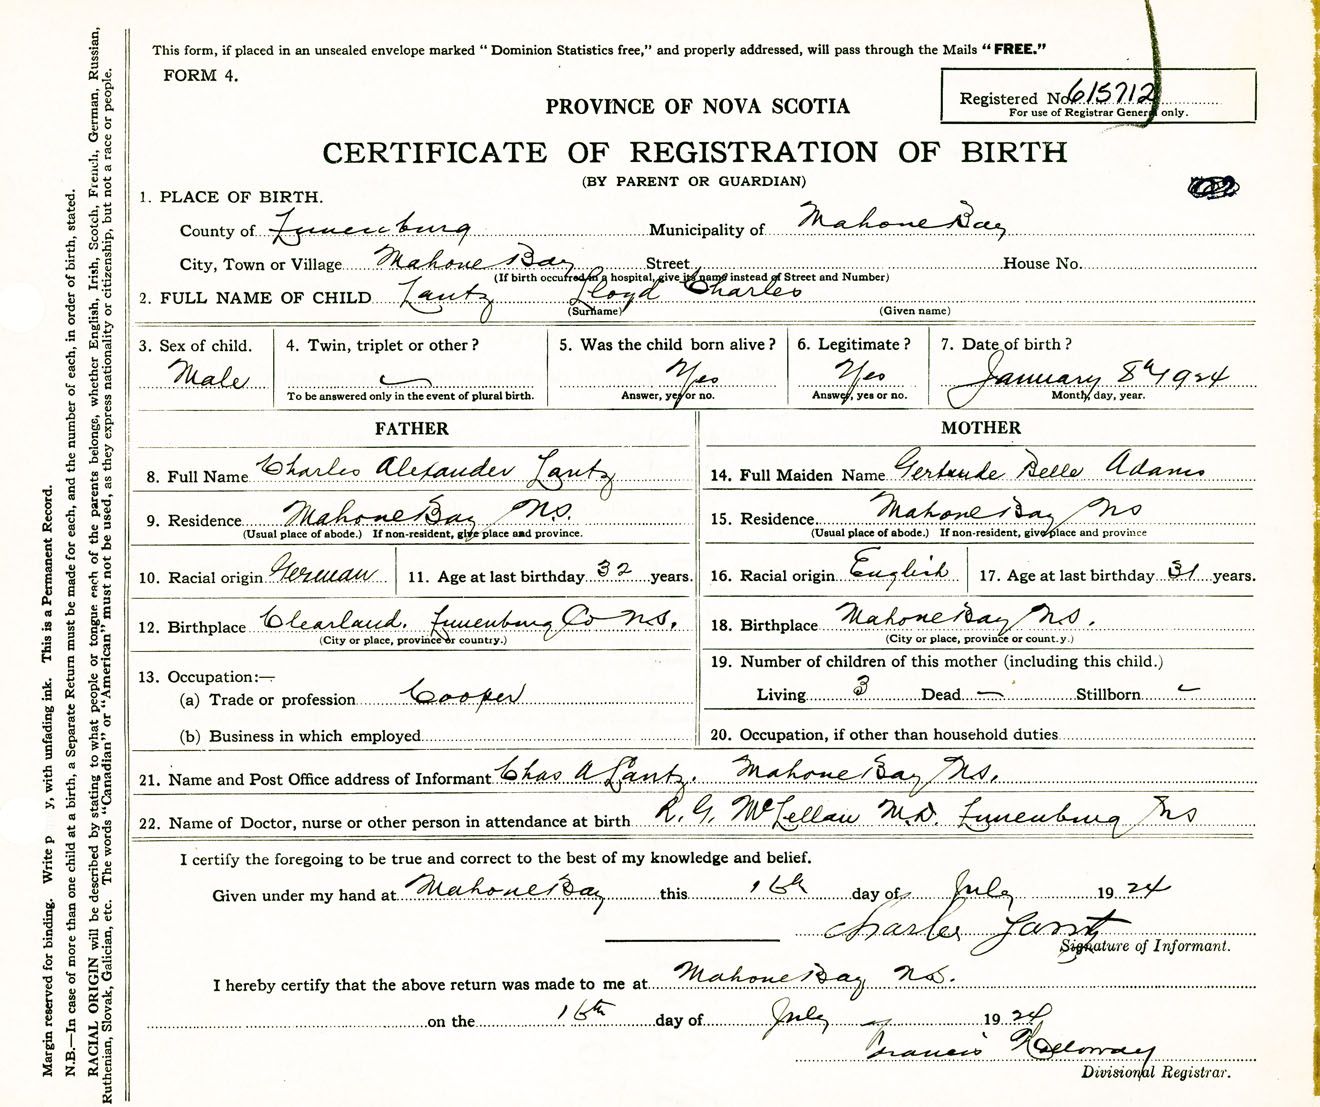 This form, if placed in an unsealed envelope marked “ Dominion Statistics free,” and properly addressed, will pass through the Mails “ FREE.”
FORM 4.
Registered No. 615712
For use of Registrar General only.
PROVINCE OF NOVA SCOTIA
CERTIFICATE OF REGISTRATION OF BIRTH
(BY PARENT OR GUARDIAN)
1. PLACE OF BIRTH.
County of Lunenburg Municipality of Mahone Bay
City, Town or Village Mahone Bay Street House No.
(If birth occurred in a hospital, give its name instead of Street and Number)
2. FULL NAME OF CHILD Lantz Lloyd Charles
(Surname) (Given name)
3. Sex of child. 4. Twin, triplet or other? 5. Was the child born alive? 6. Legitimate? 7. Date of birth?
Male Yes Yes January 8th 1924
To be answered only in the event of plural birth. Answer, yes or no. Answer, yes or no. Month, day, year.
FATHER MOTHER
8. Full Name Charles Alexander Lantz 14. Full Maiden Name Gertrude Belle Adams
9. Residence Mahone Bay N.S. 15. Residence. Mahone Bay NS
(Usual place of abode.) If non-resident, give place and province. (Usual place of abode.) If non-resident, give place and province
10. Racial origin German 11. Age at last birthday 32 years. 16. Racial origin English 17. Age at last birthday 31 years.
12. Birthplace Clearland. Lunenburg Co N.S. 18. Birthplace Mahone Bay N.S.
(City or place, province or country.) (City or place, province or count.y.)
13. Occupation:— 19. Number of children of this mother (including this child.)
(a) Trade or profession Cooper Living 3 Dead — Stillborn -
(b) Business in which employed 20. Occupation, if other than household duties
21. Name and Post Office address of Informant Chas A Lantz. Mahone Bay N.S.
22. Name of Doctor, nurse or other person in attendance at birth R. G. McLellan M.D. Lunenburg NS
I certify the foregoing to be true and correct to the best of my knowledge and belief.
Given under my hand at Mahone Bay this 16th day of July 1924
Charles Lantz
Signature of Informant.
I hereby certify that the above return was made to me at Mahone Bay N.S.
on the 16th day of July 1924
Francis Holloway
Divisional Registrar.
Margin reserved for binding. Write p y, with unfading ink. This is a Permanent Record.
N.B.—In case of more than one child at a birth, a Separate Return must be made for each, and the number of each, in order of birth, stated.
RACIAL ORIGIN will be described by stating to what people or tongue each of the parents belongs, whether English, Irish, Scotch, French, German, Russian,
Ruthenian, Slovak, Galician, etc. The words “Canadian” or “American” must not be used, as they express nationality or citizenship, but not a race or people.